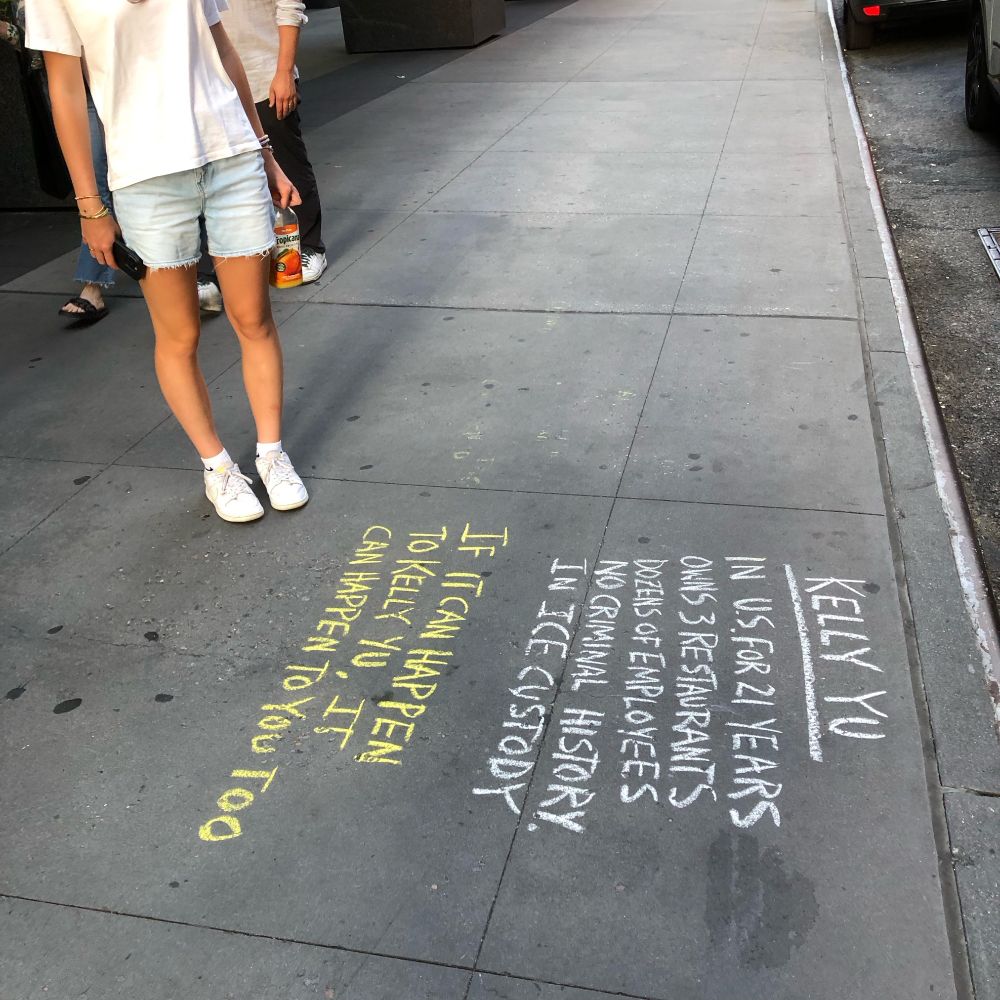 KELLY YU
IN U.S. FOR 21 YEARS
OWNS 3 RESTAURANTS
DOZENS OF EMPLOYEES
NO CRIMINAL HISTORY.
IN ICE CUSTODY
IF IT CAN HAPPEN
TO KELLY YU. IT
CAN HAPPEN TO YOU TOO
Tropicana